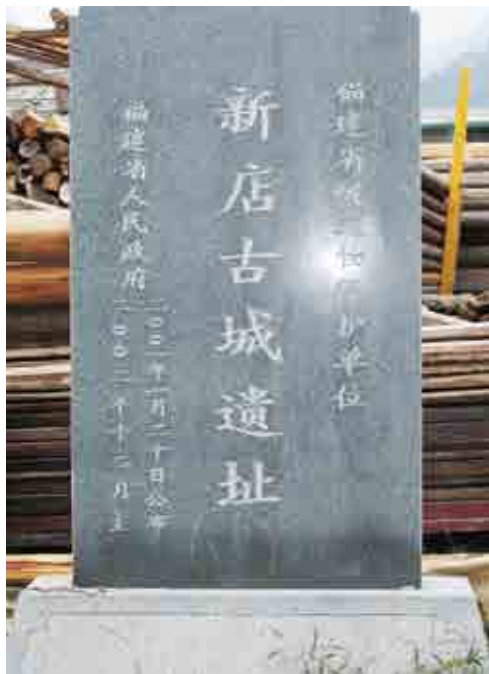 福建省级文物保护单位
新店古城遺址
福建省人民政府
二〇〇一年一月二十日公布
二〇〇二年十二月立